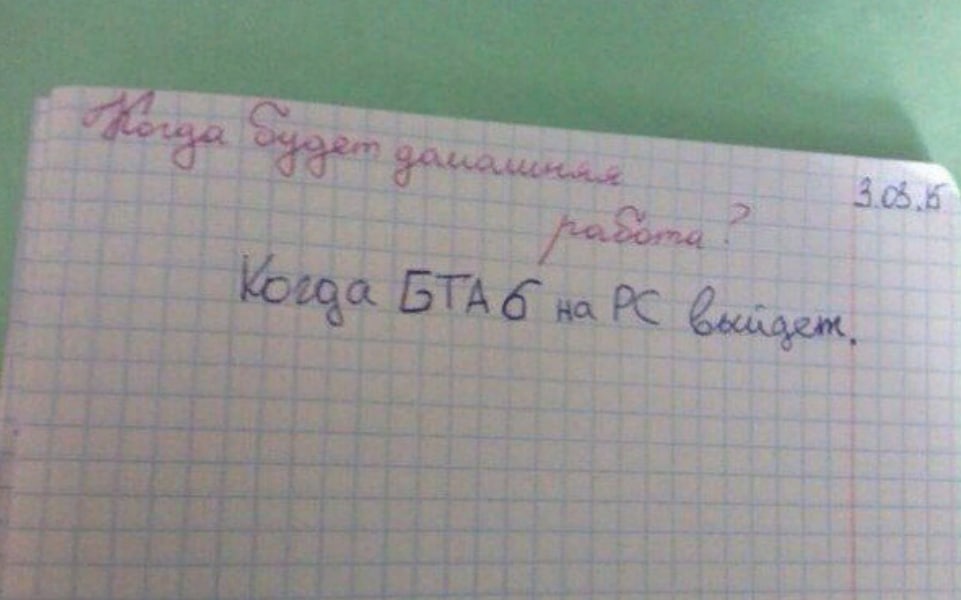 Когда будет домашняя
3.03.15
работа?
Когда БТА 6 на PC выйдет.